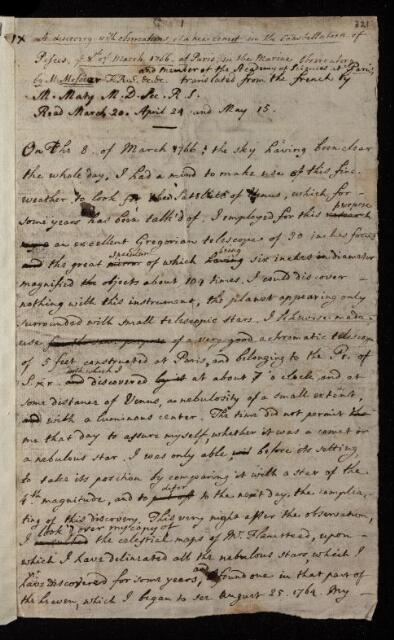 321
1
IX A discovery with observations, of a new comet in the Constellation of
Pisces, ye 8th of March 1766. at Paris, in the Marine Observatory
and member of the Academy of Sciences at Paris,
by M. Messier F.R.S. &c. &c. translated from the french by
M. Maty M.D. Sec. R.S.
Read March 20. April 24 and May 15.
On the 8 of March 1766, the sky having been clear
the whole day, I had a mind to make use of this fine
weather to look for the Satellite of Venus, which for
some years has been talk'd of. I employed for this
purpose
an excellent Gregorian telescope of 30 inches focus
speculum being
and the great mirror of which having six inches in diameter
magnified the objects about 104 times. I could discover
nothing with this instrument, the planet appearing only
surrounded with small telescopic stars. I likewise made
use for the same purpose of a very good achromatic telescope
of 5 feet constructed at Paris, and belonging to the Pr. of
with which I
and discovered by it at about 7 o'clock and at
some distance of Venus, a nebulosity of a small extent,
and with a luminous center. The time did not permit
me that day to assure myself, whether it was a comet or
a nebulous star. I was only able before its setting
to take its position by comparing it with a star of the
defer
4th magnitude, and to put off to the next day, the complea-
ting of this discovery. This very night after the observation,
look'd over my copy of
I the celestial maps of Mr. Flamstead, upon
which I have delineated all the nebulous stars, which I
have discovered for some years, and found one in that part of
the heaven, which I began to see August 25. 1764. My